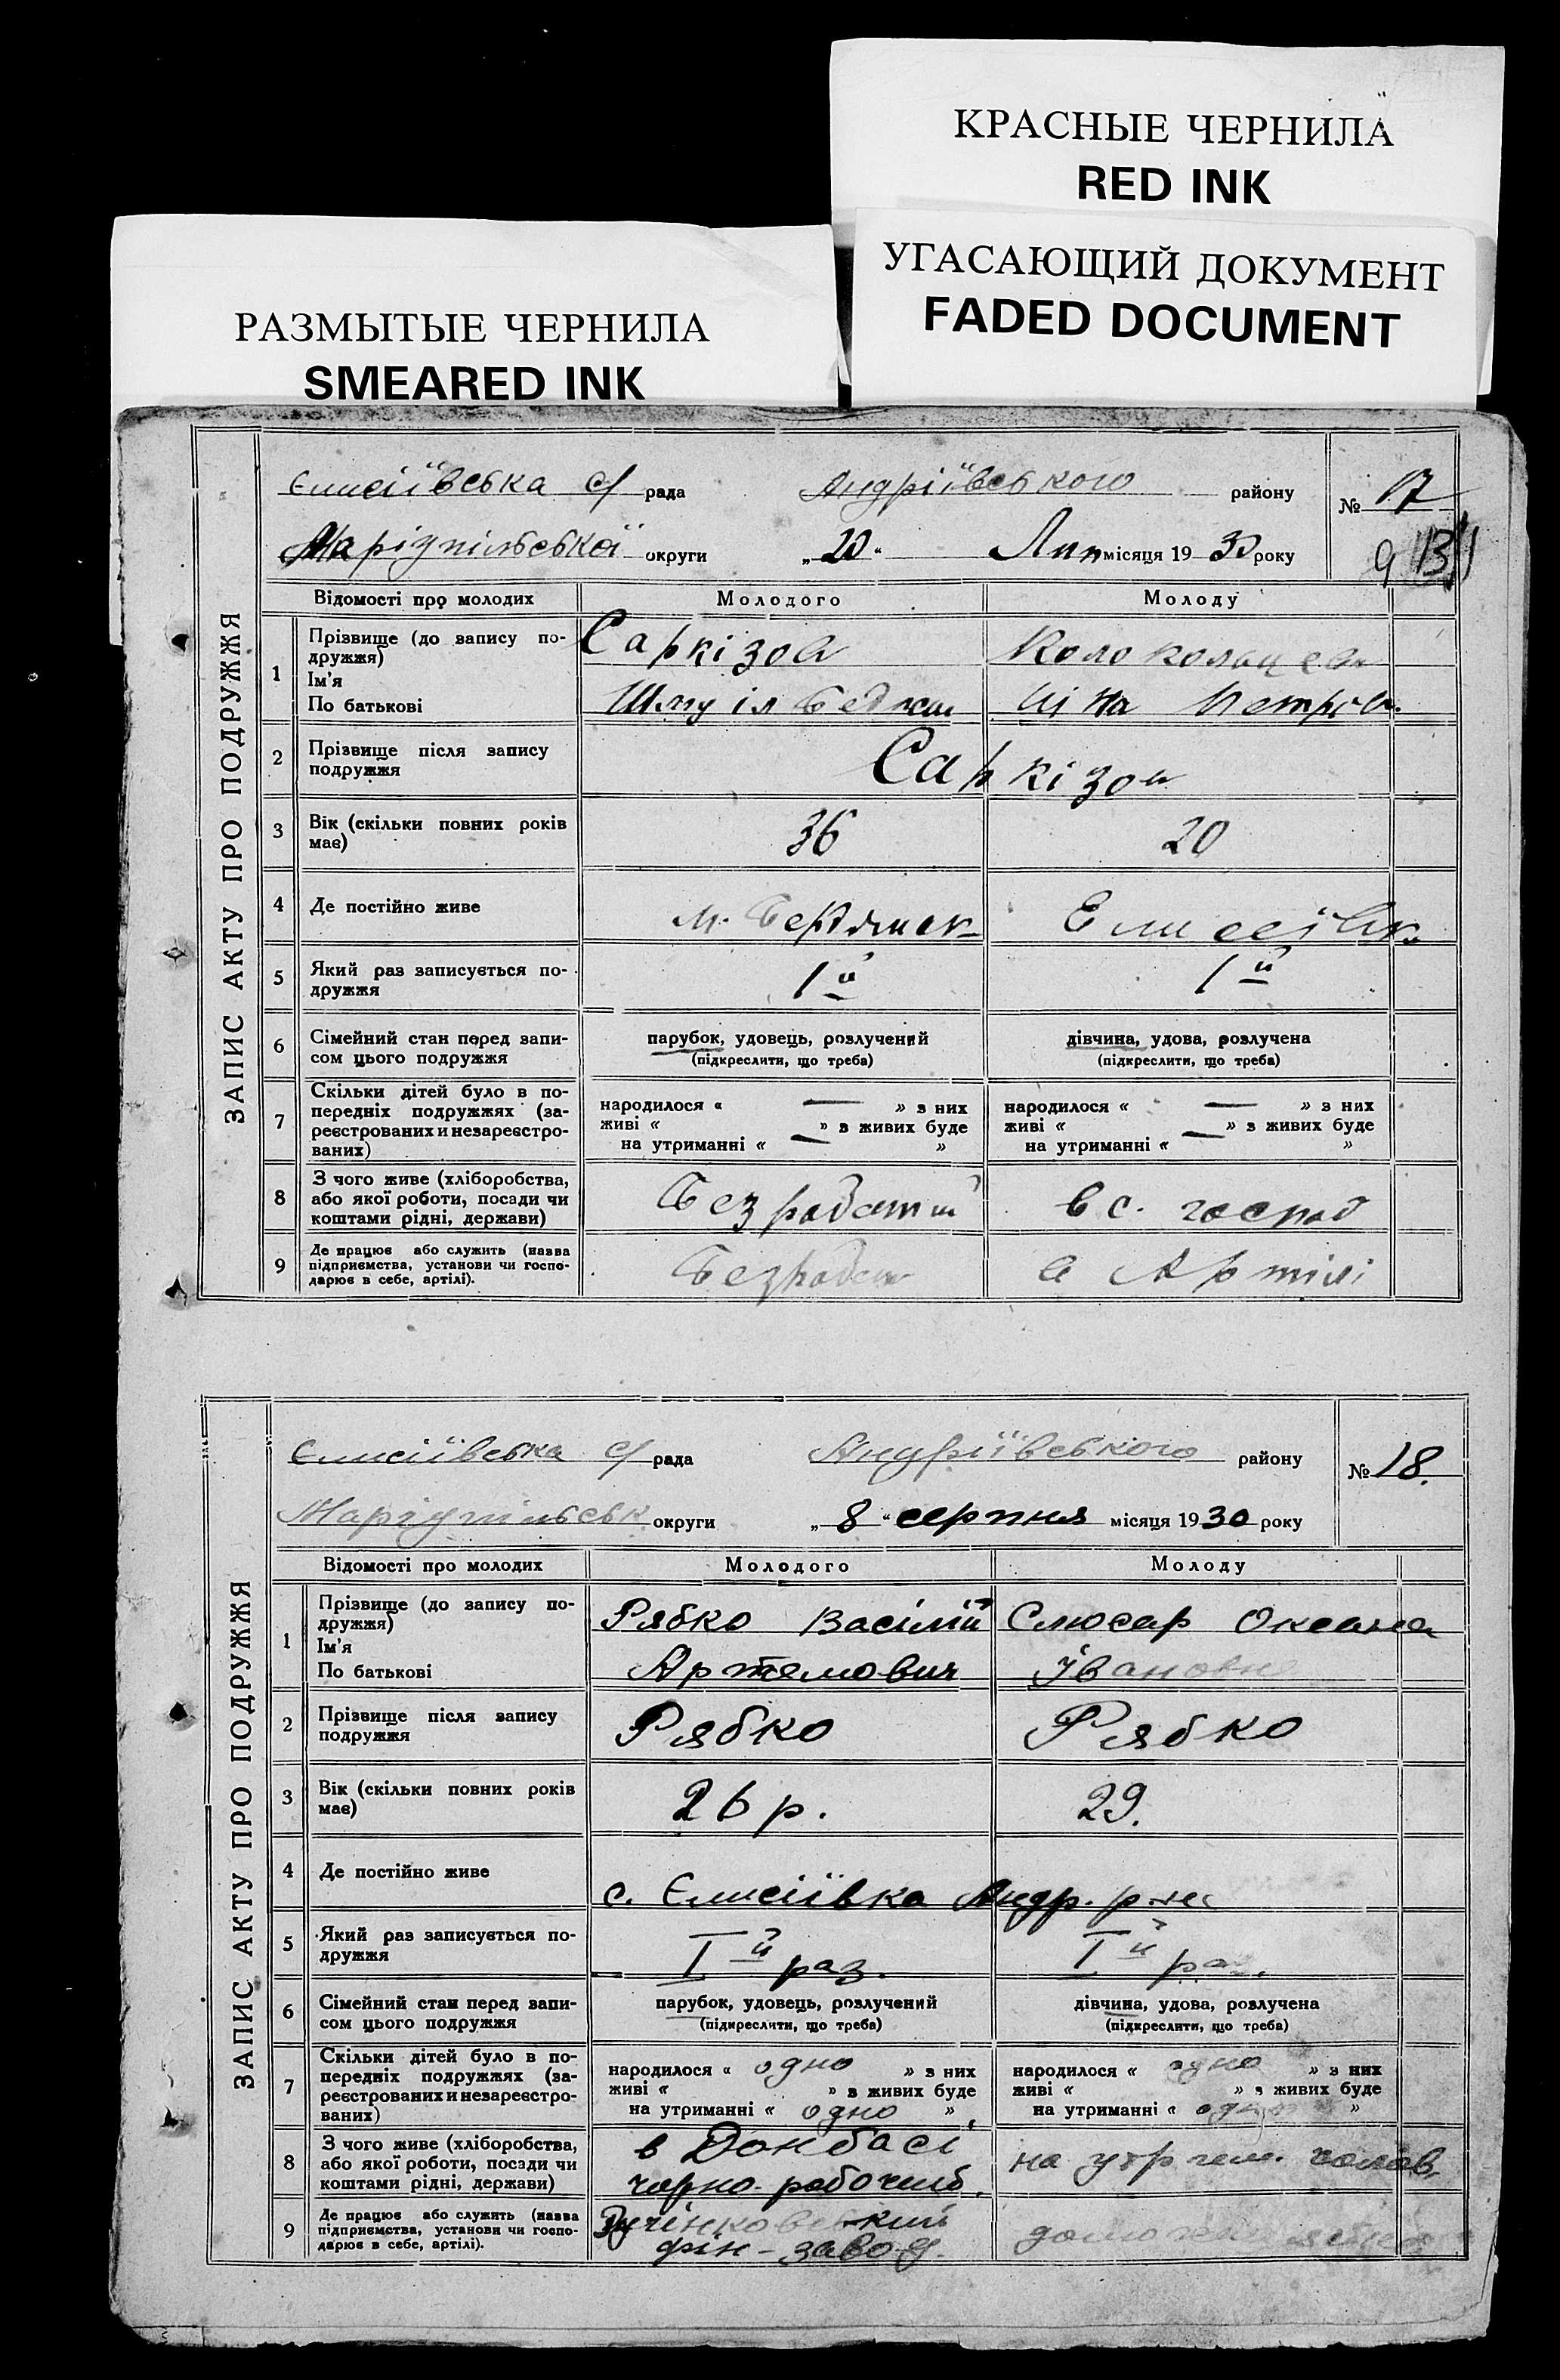 КРАСНЫЕ ЧЕРНИЛА
RED INK
УГАСАЮЩИЙ ДОКУМЕНТ
FADED DOCUMENT
РАЗМЫТЫЕ ЧЕРНИЛА
SMEARED INK
ЗАПИС АКТУ ПРО ПОДРУЖЖЯ
Єлисіївська с/ рада Андріївського району № 17
Маріупільської округи „20“ Лип місяця 1930 року
Відомості про молодих Молодого Молоду
1 Прізвище (до запису по- Саркізов
дружжя)
Ім'я
По батькові
2 Прізвище після запису
подружжя Саркізов
3 Вік (скільки повних років 36 20
має)
4 Де постійно живе м. Бердянск Елисеївк
5 Який раз записується по- 1й 1й
дружжя
6 Сімейний стан перед запи- парубок, удовець, розлучений дівчина, удова, розлучена
сом цього подружжя (підкреслити, що треба) (підкреслити, що треба)
7 Скільки дітей було в по- народилося « — » з них народилося « — » з них
передніх подружжях (за- живі « » з живих буде живі « » з живих буде
реєстрованих и незареєстро- на утриманні « — » на утриманні « — »
ваних)
8 З чого живе (хліборобства, Безработний в с. господ
або якої роботи, посади чи
коштами рідні, держави)
9 Де працює або служить (назва Безработ в Артілі
підприємства, установи чи госпо-
дарює в себе, артілі).
ЗАПИС АКТУ ПРО ПОДРУЖЖЯ
Єлисіївська с/ рада Андріївського району № 18.
Маріупільськ округи „8“ серпня місяця 1930 року
Відомості про молодих Молодого Молоду
1 Прізвище (до запису по- Рябко Васілій Слюсар Оксана
дружжя)
Ім'я
По батькові Артемович Івановна
2 Прізвище після запису Рябко Рябко
подружжя
3 Вік (скільки повних років 26 р. 29.
має)
4 Де постійно живе с. Єлисіївка Андр. р-на
5 Який раз записується по- Iй раз. Iй раз.
дружжя
6 Сімейний стан перед запи- парубок, удовець, розлучений дівчина, удова, розлучена
сом цього подружжя (підкреслити, що треба) (підкреслити, що треба)
7 Скільки дітей було в по- народилося « одно » з них народилося « одно » з них
передніх подружжях (за- живі « » з живих буде живі « » з живих буде
реєстрованих и незареєстро- на утриманні « одно » на утриманні « одно »
ваних)
8 З чого живе (хліборобства, в Донбасі на утр
або якої роботи, посади чи чорно-рабочий.
коштами рідні, держави)
9 Де працює або служить (назва
підприємства, установи чи госпо- завод.
дарює в себе, артілі).